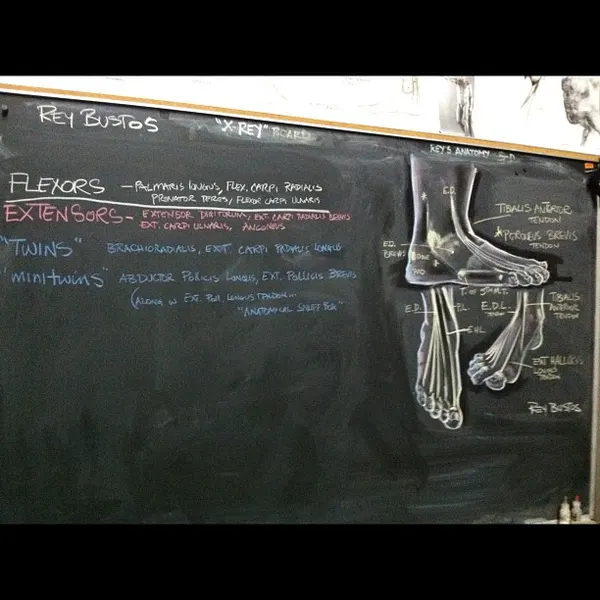 REY BUSTOS
"X-REY" BOARD
REY'S ANATOMY 5-D
FLEXORS — PALMARIS LONGUS, FLEX. CARPI RADIALIS
PRONATOR TERES, FLEXOR CARPI ULNARIS
EXTENSORS - EXTENSOR DIGITORUM, EXT. CARPI RADIALIS BREVIS
EXT. CARPI ULNARIS, ANCONEUS
"TWINS" BRACHIORADIALIS, EXT. CARPI RADIALIS LONGUS
"MINITWINS" ABDUCTOR POLLICIS LONGUS, EXT. POLLICIS BREVIS
(ALONG W EXT. POLL. LONGUS TENDON...
"ANATOMICAL SNUFF BOX"
E.D.
TIBALIS ANTERIOR
TENDON
*PORONEUS BREVIS
TENDON
BREVIS
T. OF 5TH M.T.
E.D.
P.L.
E.H.L
E.D.L
TENDON
TIBALIS
ANTERIOR
TENDON
EXT HALLUCUS
LONGUS
TENDON
REY BUSTOS